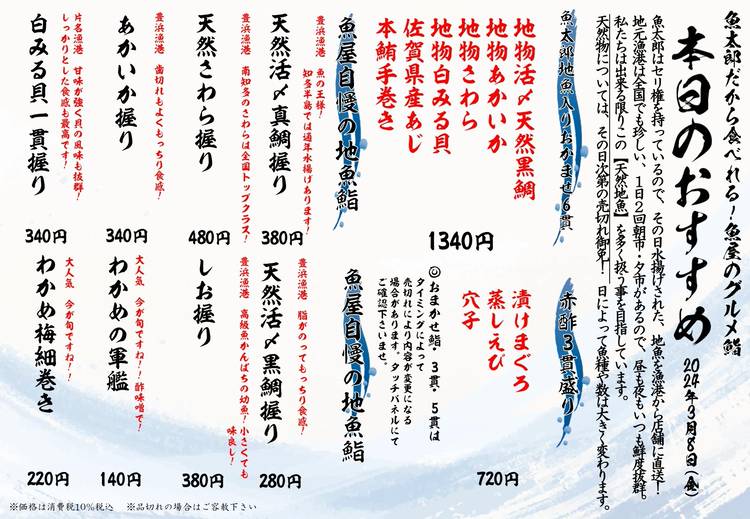 魚太郎だから食べれる！魚屋のグルメ鮨
本日のおすすめ
2024年3月8日（金）
魚太郎はセリ権を持っているので、その日水揚げされた、地魚を漁港から店舗に直送！
地元漁港は全国でも珍しい、1日2回朝市・夕市があるので、昼も夜もいつも鮮度抜群。
私たちは出来る限りこの【天然地魚】を多く扱う事を目指しています。
天然物については、その日次第の売切れ御免！日によって魚種や数は大きく変わります。
魚太郎地魚入りおかませ6貫
地物活〆天然黒鯛
地物あかいか
地物さわら
地物白みる貝
佐賀県産あじ
本鮪手巻き
1340円
赤酢3貫盛り
漬けまぐろ
蒸しえび
穴子
720円
◎おまかせ鮨・3貫・5貫は
タイミングによって
売切れにより内容が変更になる
場合があります。タッチパネルにて
ご確認下さいませ。
魚屋自慢の地魚鮨
豊浜漁港 魚の王様！
知多半島では通年水揚げあります！
天然活〆真鯛握り
380円
豊浜漁港 南知多のさわらは全国トップクラス！
天然さわら握り
480円
豊浜漁港 歯切れもよくもっちり食感！
あかいか握り
340円
片名漁港 甘味が強く貝の風味も抜群！
しっかりとした食感も最高です！
白みる貝一貫握り
340円
魚屋自慢の地魚鮨
豊浜漁港 脂がのってもっちり食感！
天然活〆黒鯛握り
280円
豊浜漁港 高級魚かんぱちの幼魚！小さくても
味良し！
しお握り
380円
大人気 今が旬ですね！！酢味噌で！
わかめの軍艦
140円
大人気 今が旬ですね！！
わかめ梅細巻き
220円
※価格は消費税10％税込 ※品切れの場合はご容赦下さい